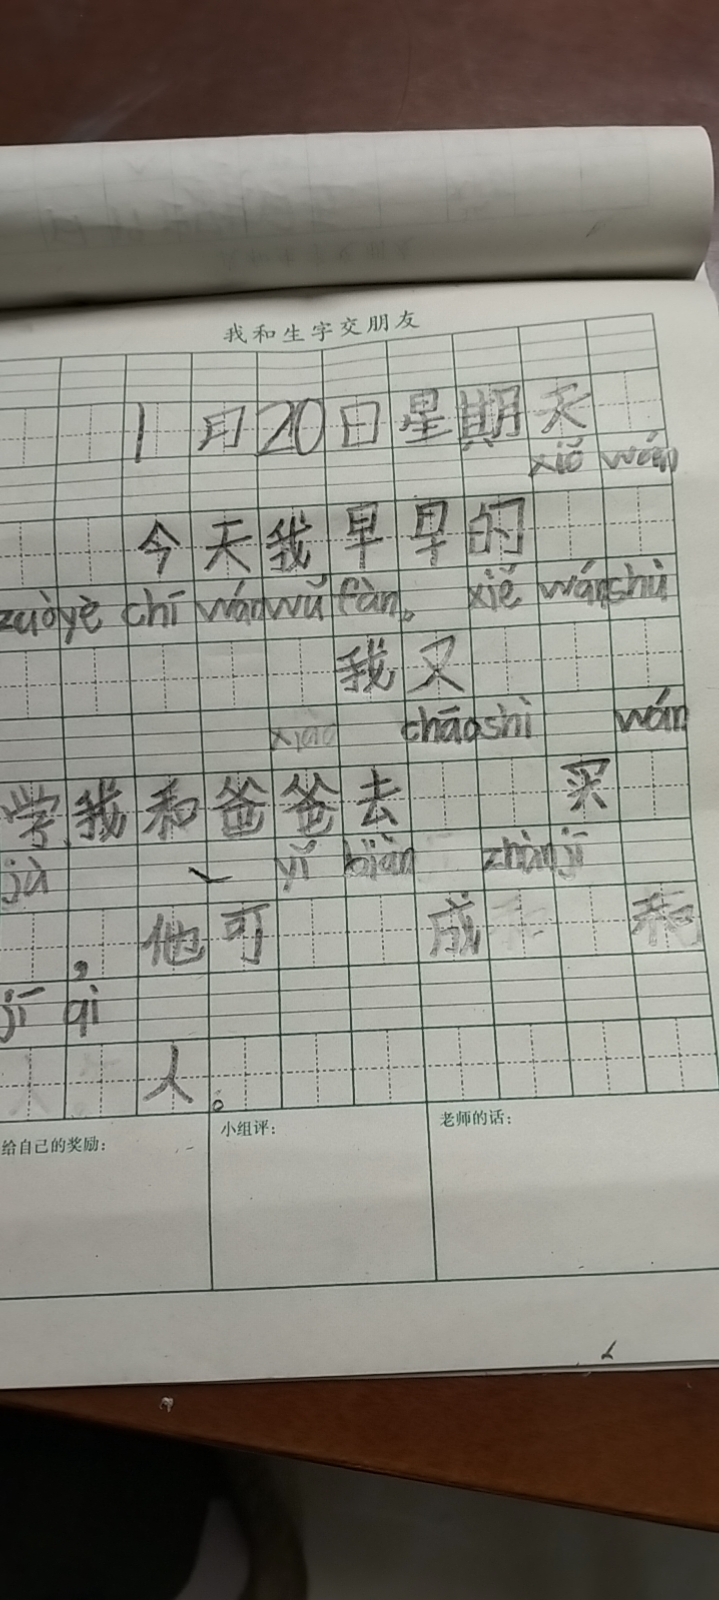 我和生字交朋友
1月20日星期天
xiě wán
今天我早早的
zuòyè chī wán wǔ fàn。 xiě wánshù
我又
xiào chāoshì wán
学我和爸爸去 买
jù yǐ biàn zhànjī
，他可 成 和
jī qì
人。
给自己的奖励：
小组评：
老师的话：